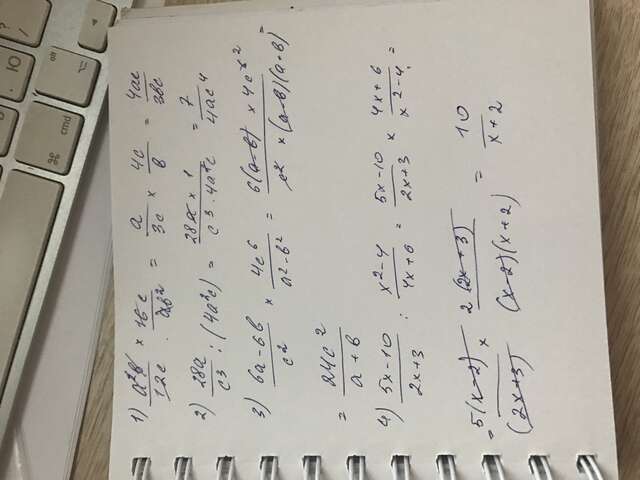 1) a²b/12c × 16c/ab² = a/3c × 4c/b = 4ac/3bc
2) 28a/c³ : (4a²c) = 28a × 1/c³ · 4a²c = 7/4ac⁴
3) 6a-6b/c² × 4c⁶/a²-b² = 6(a-b) × 4c⁶ ²/c² × (a-b)(a+b) =
= 24c²/a+b
4) 5x-10/2x+3 : x²-4/4x+6 = 5x-10/2x+3 × 4x+6/x²-4 =
= 5(x-2)/(2x+3) × 2(2x+3)/(x-2)(x+2) = 10/x+2
cmd
⌘